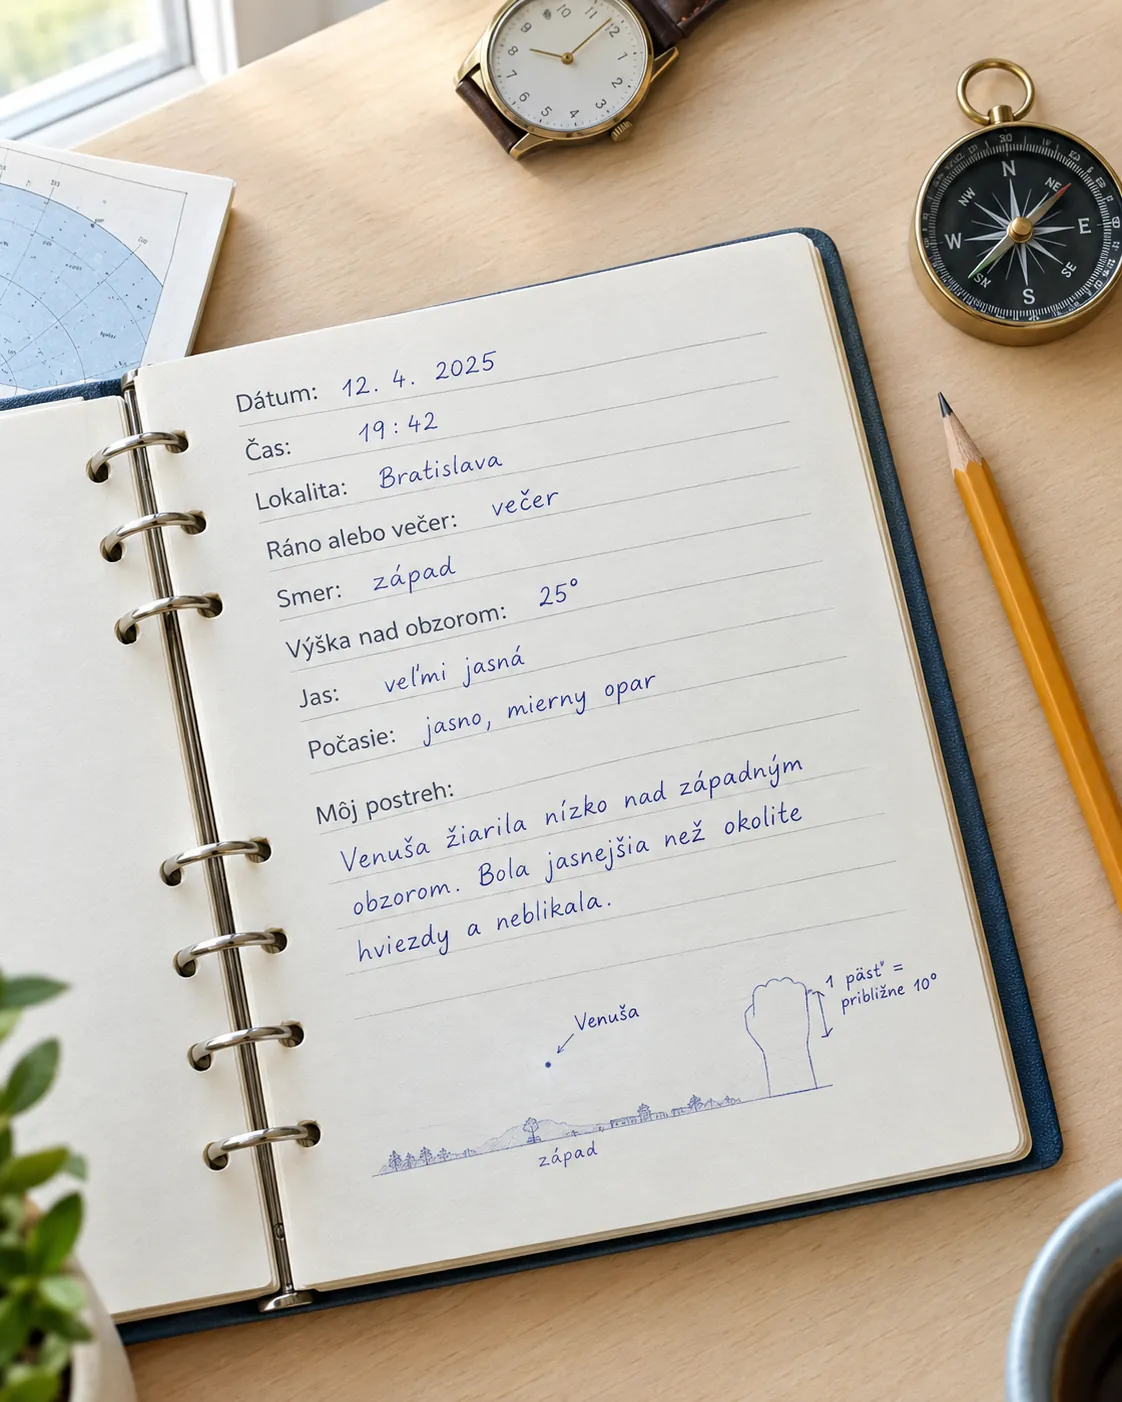 Dátum: 12. 4. 2025
Čas: 19:42
Lokalita: Bratislava
Ráno alebo večer: večer
Smer: západ
Výška nad obzorom: 25°
Jas: veľmi jasná
Počasie: jasno, mierny opar
Môj postreh:
Venuša žiarila nízko nad západným
obzorom. Bola jasnejšia než okolite
hviezdy a neblikala.
Venuša
1 päsť =
približne 10°
západ
N
NE
E
SE
S
W
NW
8
9
10
11
12
1
2
3
4
5
6
7